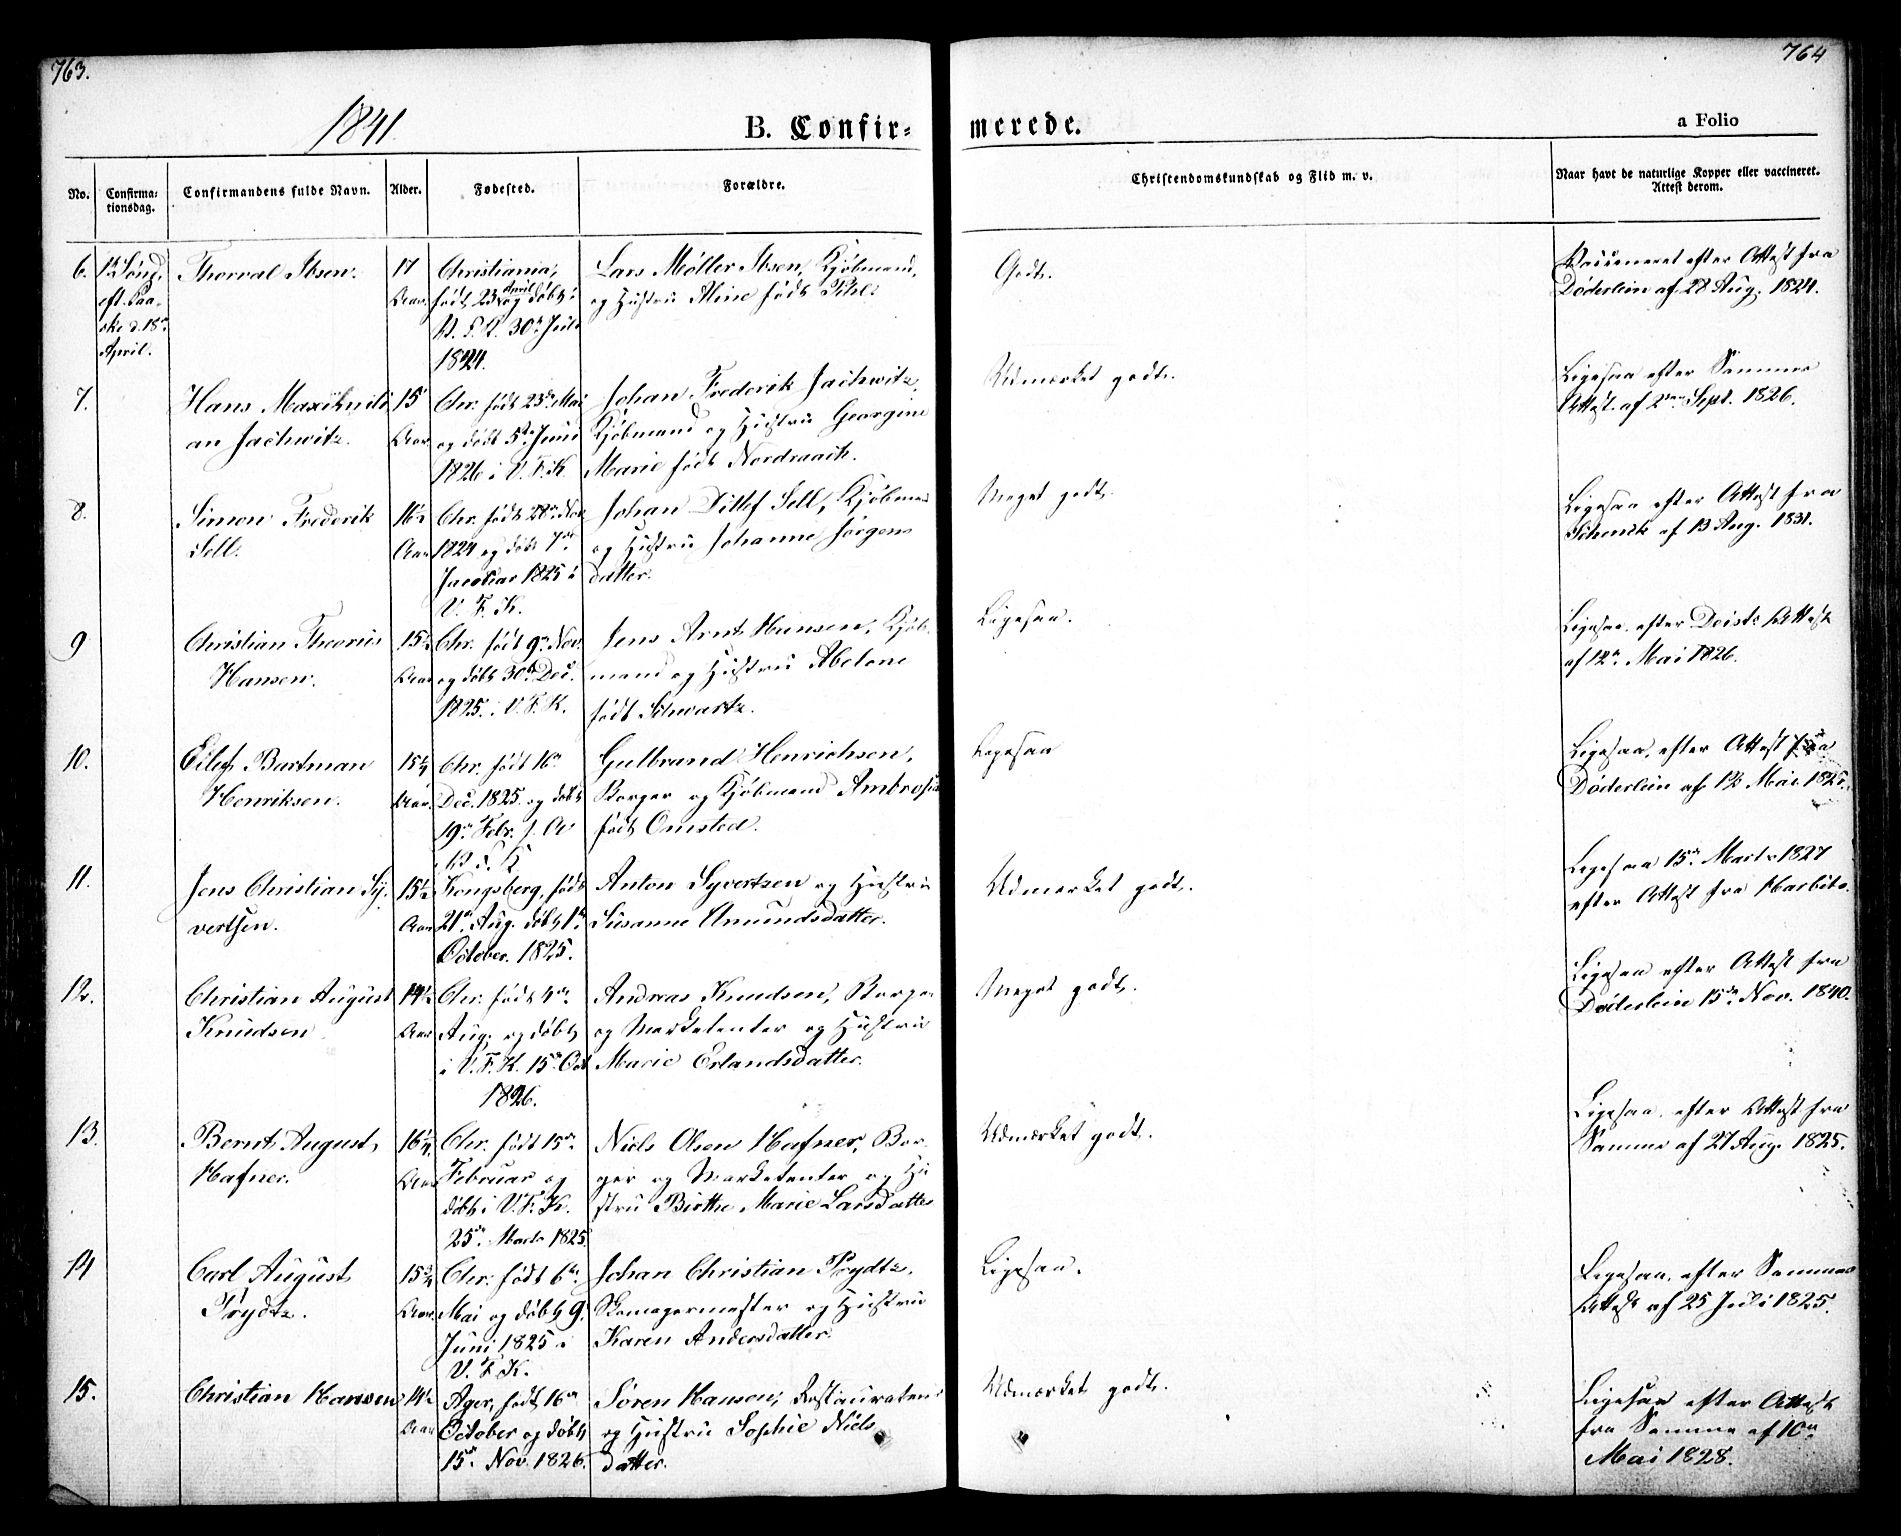 763.
764
1841.
B. Confir-
merede.
a Folio
No.
Confirma-
tionsdag.
Confirmandens fulde Navn.
Alder.
Fødested.
Forældre.
Christendomskundskab og Flid m. v.
Naar havt de naturlige Kopper eller vaccineret.
Attest derom.
6.
eft. Paa-
ske d. 18de
April.
Thorval Ibsen.
17
Aar.
Christiania,
født 23 April og døbt i
V. F. K. 30te Juli
1824.
Lars Møller Ibsen, Kjøbmand,
og Hustru Aline født
Godt.
Vaccineret efter Attest fra
Døderlein af 28 Aug. 1824.
7.
Hans Maximili
an Jachwitz.
15
Aar
Chr. født 23de Mai
og døbt 5te Juni
1826 i V. F. K.
Johan Frederik Jachwitz,
Kjøbmand og Hustru Georgine
Marie født Nordraach.
Udmærket godt.
Ligesaa efter Samme
Attest af 2den Sept. 1826.
8.
Simon Frederik
Sell.
16½
Aar
Chr. født 28de Nov
1824 og døbt 7de
Januar 1825 i
V. F. K.
Johan Ditlef Sell, Kjøbmand
og Hustru Johanne Jørgens
datter.
Meget godt.
Ligesaa efter Attest fra
Schenck af 13 Aug. 1831.
9
Christian Theorius
Hansen.
15½
Aar
Chr. født 9de Nov.
og døbt 30te Dec.
1825. i V. F. K.
Jens Arnt Hansen, Kjøb-
mand og Hustru Abelone
født Schwartz.
Ligesaa.
Ligesaa efter Attest
af 12te Mai 1826.
10.
Eilef Bartman
Henriksen.
15¼
Aar.
Chr. født 16de
Dec. 1825 og døbt
19de Febr. f. A
i V. F. K
Gulbrand Henrichsen,
Borger og Kjøbmand Ambrosia
født Omsted.
Ligesaa
Ligesaa, efter Attest fra
Døderlein af 12 Mai
11.
Jens Christian Sy-
vertsen.
15½
Aar
Kongsberg, født
21de Aug. døbt 1te
October. 1825.
Anton Syvertsen og Hustru
Susanne Amundsdatter.
Udmærket godt.
Ligesaa 15de Marts 1827
efter Attest fra
12.
Christian August
Knudsen
14½
Aar
Chr. født 4de
Aug. og døbt
i V. F. K. 15de Oct
1826.
Andreas Knudsen, Borger
og Marketenter og Hustru
Marie Erlandsdatter.
Meget godt.
Ligesaa efter Attest fra
Døderlein 15de Nov. 1840.
13.
Bernt August
Hafner.
16¼
Aar
Chr. født 15de
Februar og
døbt i V. F. K.
25de Marts 1825.
Niels Olsen Hafner, Bor-
ger og Marketenter og Hu
stru Birthe Marie Larsdatter
Udmærket godt.
Ligesaa, efter Attest fra
Samme af 27 Aug. 1825.
14
Carl August
Prydtz.
15¾
Aar.
Chr. født 6te
Mai og døbt 9.
Juni 1825 i
V. F. K.
Johan Christian Prydtz,
Skomagermester og Hustru
Karen Andersdatter.
Ligesaa.
Ligesaa, efter Sammes
Attest af 25 Juli 1825.
15.
Christian Hansen
14½
Aar
Ager, født 16de
October og døbt
15de Nov. 1826.
Søren Hansen, Restaurateur
og Hustru Sophie Niels
datter.
Udmærket godt.
Ligesaa efter Attest
fra Samme af 10de
Mai 1828.